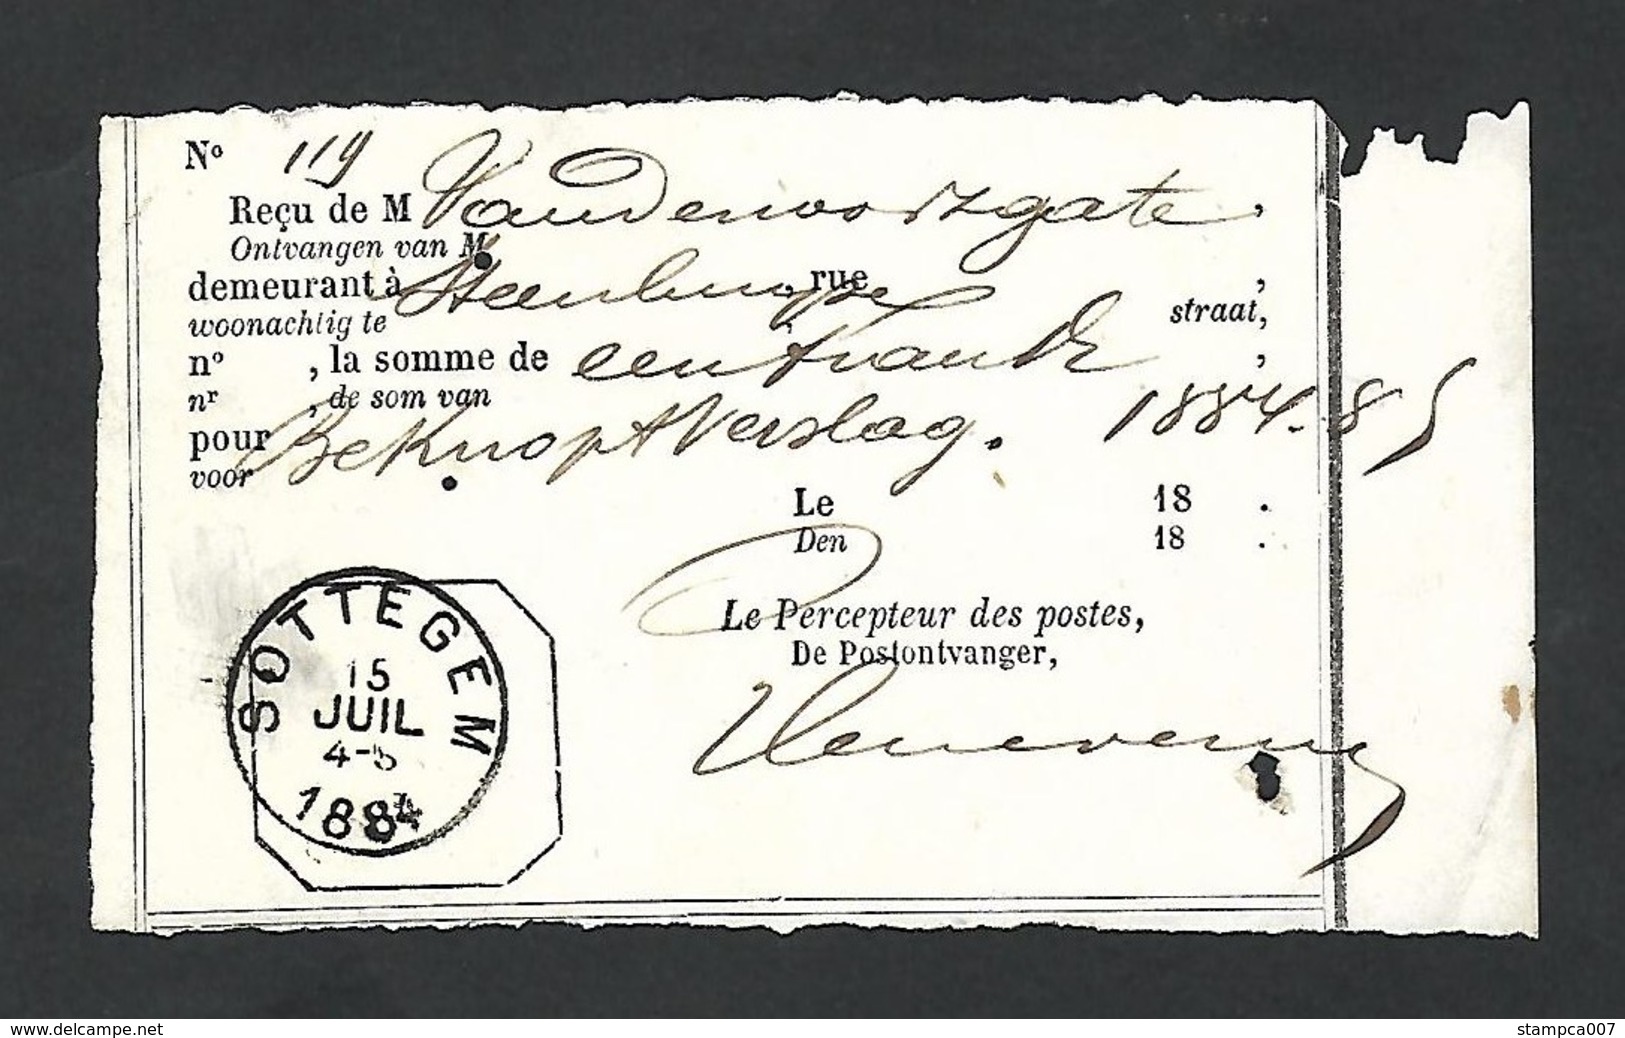 Nº 119
Reçu de M Vandenvoortgate.
Ontvangen van M.
demeurant à , rue ,
woonachtig te straat,
nº , la somme de een Frank ,
nr , de som van
pour Beknopt Verslag. 1884.85
voor
Le 18 .
Den 18 .
Le Percepteur des postes,
De Postontvanger,
SOTTEGEM
15
JUIL
4-5
1884
www.delcampe.net
stampca007